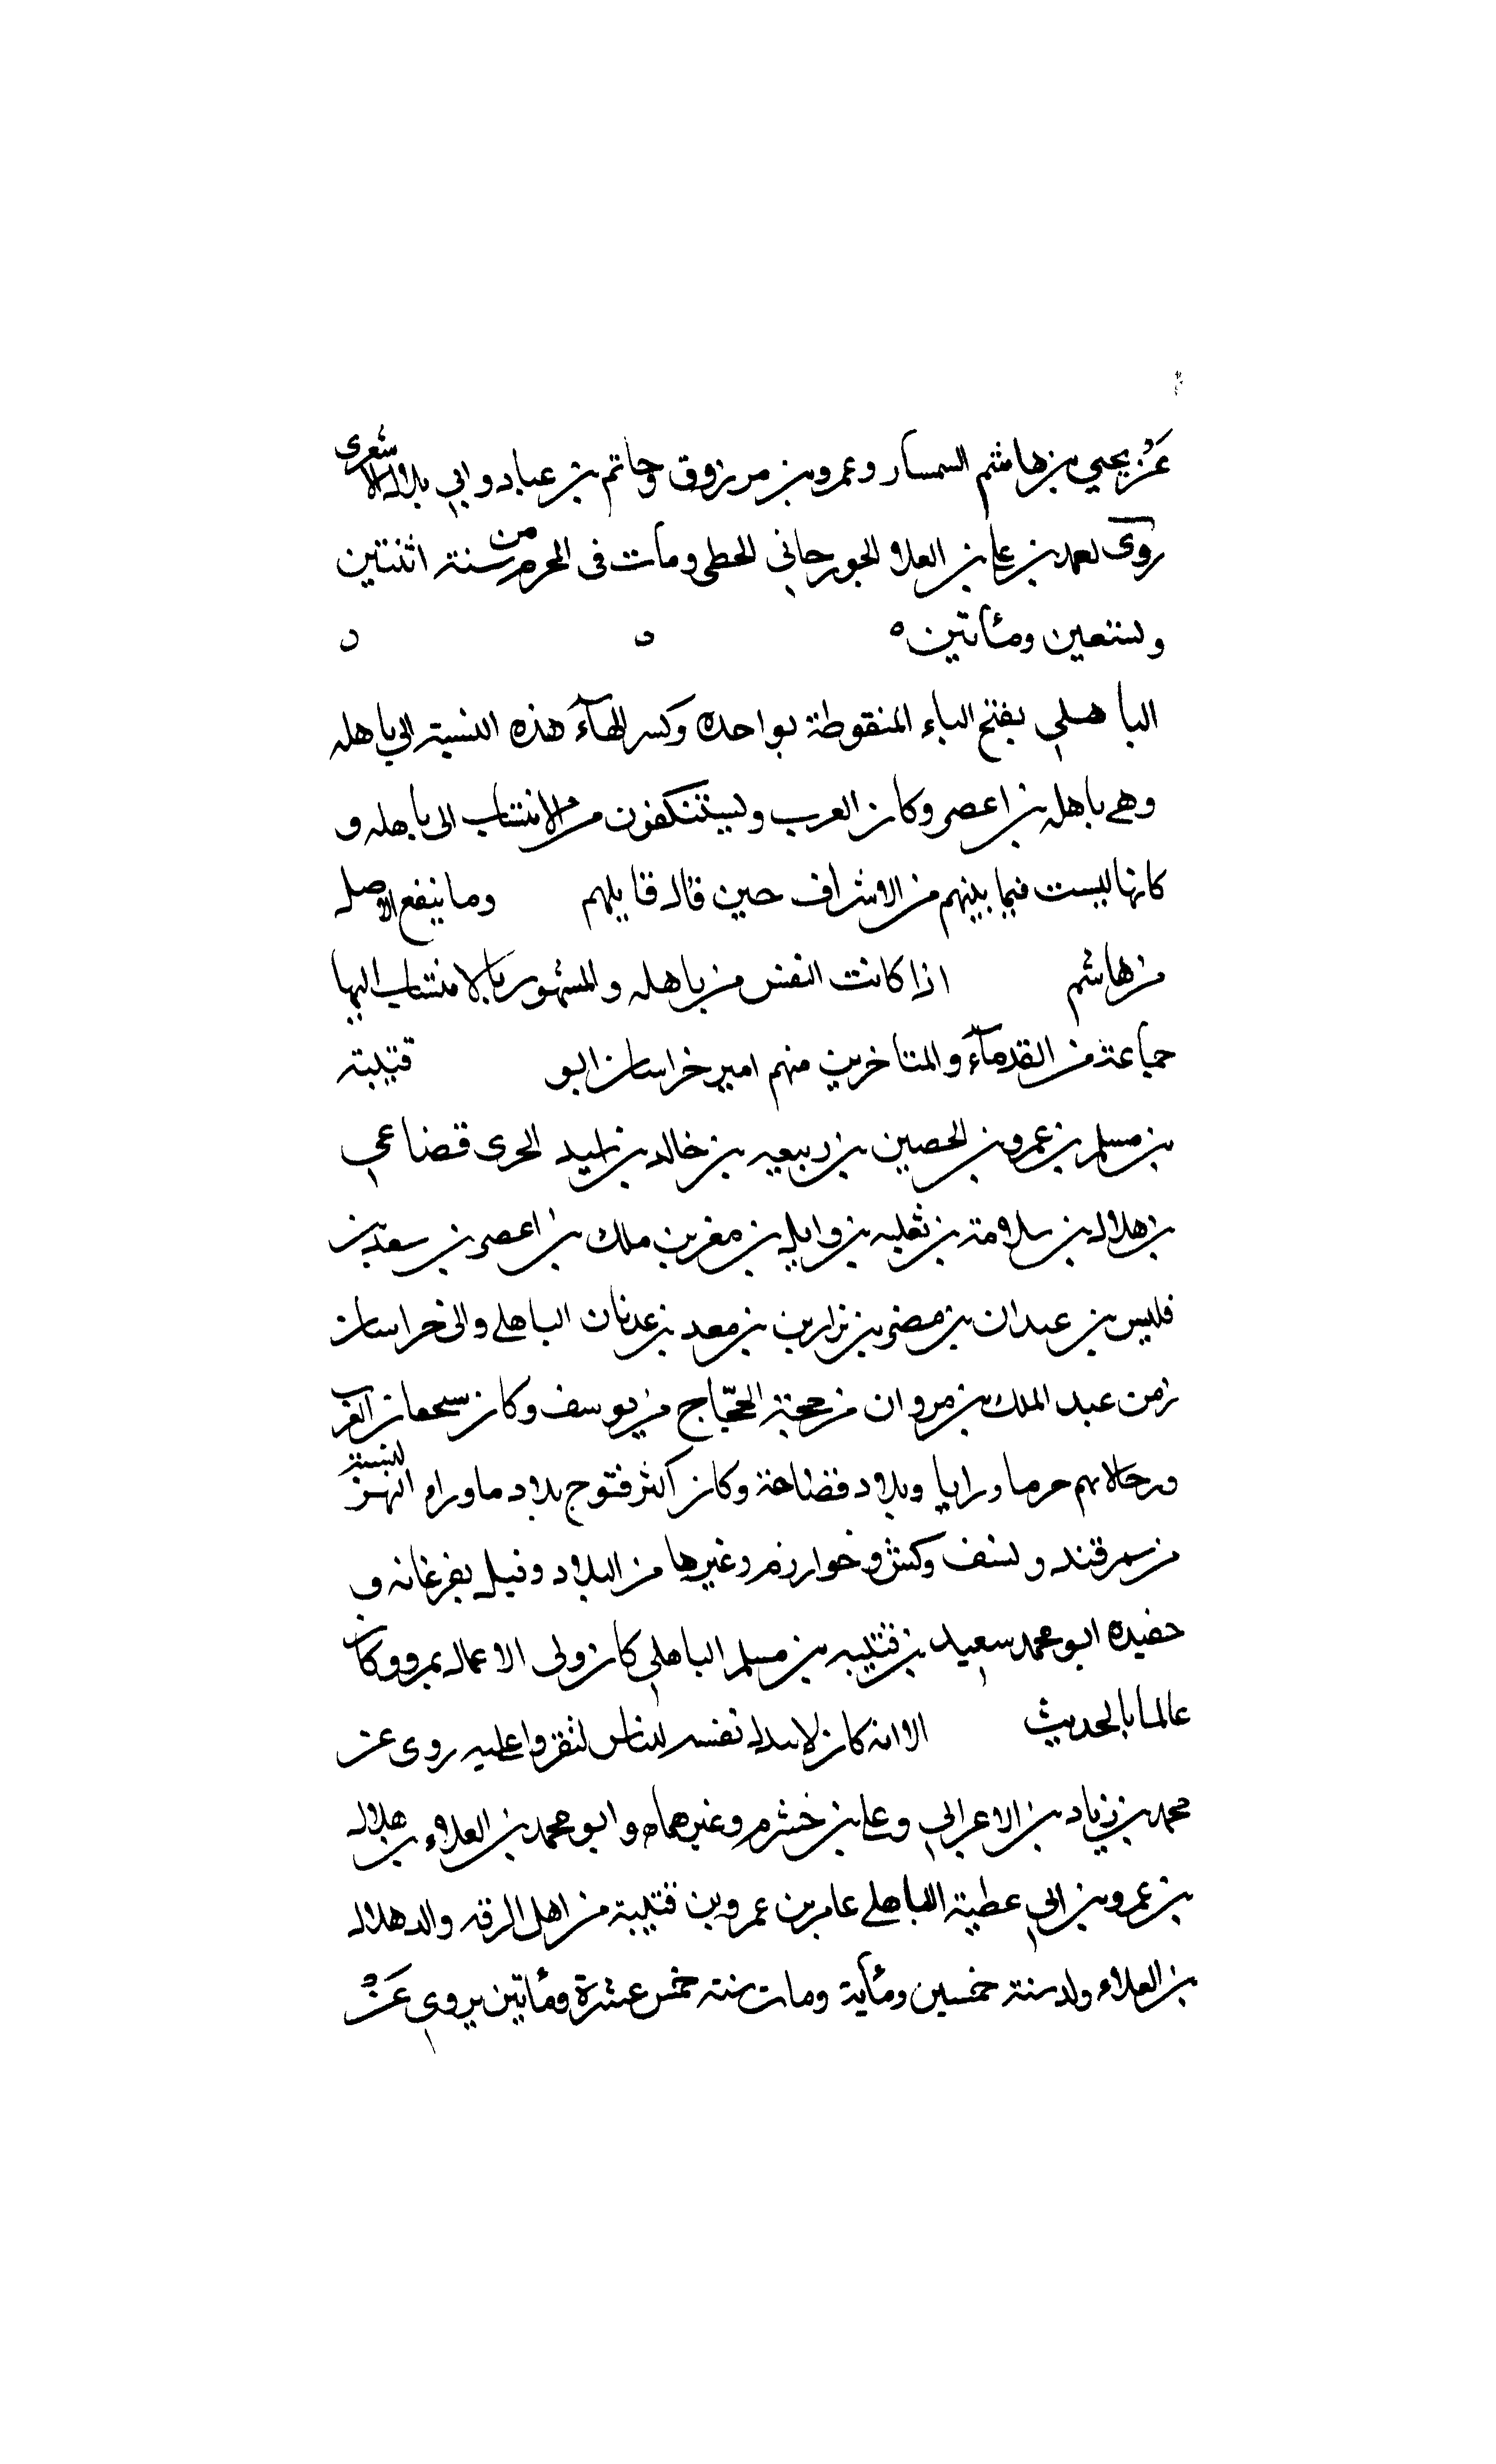 عن يحيى بن هاشم السمسار وعمرو بن مرزوق وحاتم بن عباد وابي بلال الاشعرى
روى بن على بن العلا الجورجانى ومات فى المحرم من سنة اثنتين
وتسعين ومئاتين ه
الباهلي بفتح الباء المنقوطة بواحدة وكسر الهآء هذه النسبة الى باهله
وهى باهله بن اعصر وكان العرب وليستنكفون من الانتساب الى باهله و
كانها ليست فيما بينهم من الاشراف حين قال قايلهم وما ينفع الاصل
من هاشم اذا كانت النفس من باهله والمشهور بالانتساب اليها
جماعة من القدمآء والمتاخرين منهم امير خراسان ابو قتيبة
بن مسلم بن عمرو بن الحصين بن ربيعه بن خالد بن اسيد الحرى قضاعي
بن هلال بن سلامة بن ثعلبه بن وايل بن معن بن ملك بن اعصر بن سعد بن
قيس بن عيدان بن مضر بن نزار بن بن معد بن عدنان الباهلى والى خراسان
زمن عبد الملك بن مروان من جهة الحجّاج بن يوسف وكان العرب
ورجالاتهم حرما ورايا وكان اكثر فتوح بلاد ماوراء النهر
من سمرقند ونسف وكش وخوارزم وغيرها من البلاد وقتل بفرغانه و
حفيده ابو محمد سعيد بن قتيبه بن مسلم الباهلي كان ولى الاعمال بمرو وكان
عالما بالحديث الا انه كان لا نفسه للناس ليقروا عليه روى عن
محمد بن زياد بن الاعرابي وعلى بن خشرم وغيرهما ه وابو محمد بن العلاء بن هلال
بن عمرو بن ابي عطية الباهلى عامر بن عمرو بن قتيبة من اهل الرقه والد هلال
بن العلاء ولد سنة خمسين ومئاية ومات سنة خمس عشرة ومئاتين يروي عن